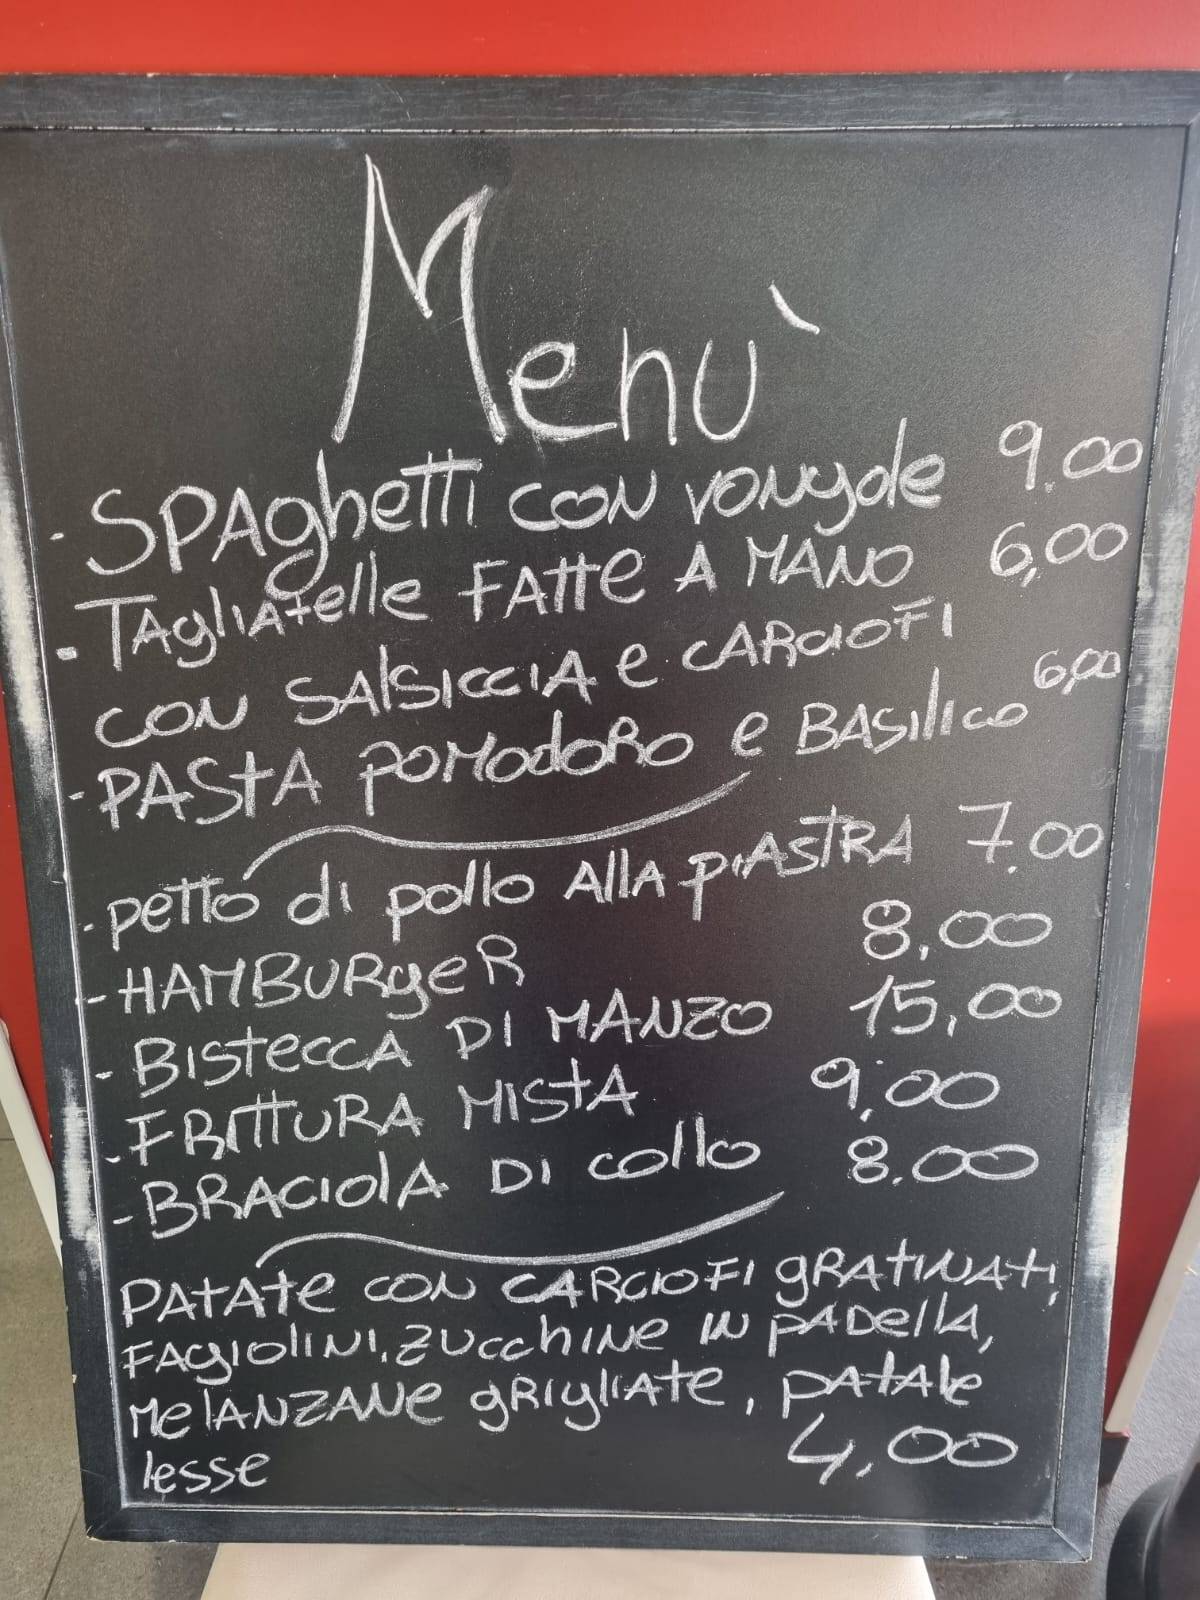 Menù
- SPAghetti CON vongole 9.00
- TAgliAtelle FAtte A MANO 6,00
CON SAlsicciA e CARCIOFI
- PAStA POModoRo e BASilico 6,00
- petto di pollo AllA PIASTRA 7.00
- HAMBURgeR 8,00
- BISTECCA DI MANZO 15,00
- FRITTURA MIStA 9,00
- BRACIolA DI collo 8.00
PATATe CON CARCIOFI gRATINATI,
FAGIOLINI, ZUCChINe IN PADellA,
MelANZANe gRIglIATe, PATATe
lesse 4,00